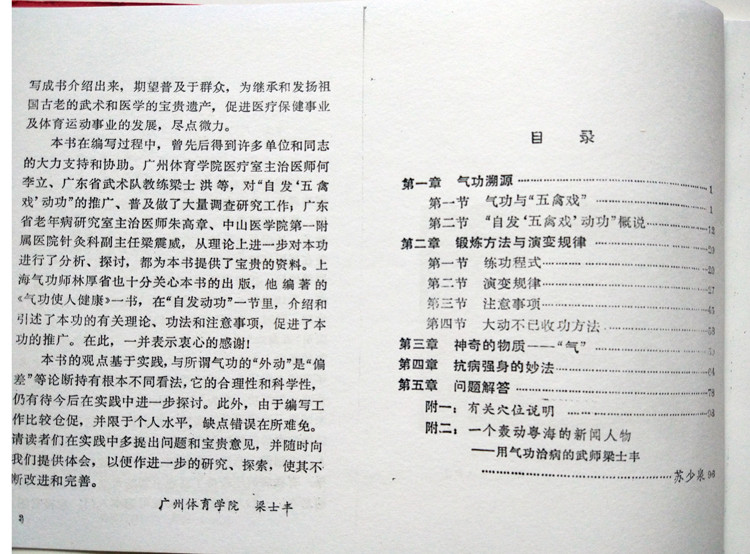 写成书介绍出来，期望普及于群众，为继承和发扬祖
国古老的武术和医学的宝贵遗产，促进医疗保健事业
及体育运动事业的发展，尽点微力。
本书在编写过程中，曾先后得到许多单位和同志
的大力支持和协助。广州体育学院医疗室主治医师何
李立、广东省武术队教练梁士洪等，对“自发‘五禽
戏’动功”的推广、普及做了大量调查研究工作；广东
省老年病研究室主治医师朱高章、中山医学院第一附
属医院针灸科副主任梁震威，从理论上进一步对本功
进行了分析、探讨，都为本书提供了宝贵的资料。上
海气功师林厚省也十分关心本书的出版，他编著的
《气功使人健康》一书，在“自发动功”一节里，介绍和
引述了本功的有关理论、功法和注意事项，促进了本
功的推广。在此，一并表示衷心的感谢！
本书的观点基于实践，与所谓气功的“外动”是“偏
差”等论断持有根本不同看法，它的合理性和科学性，
仍有待今后在实践中进一步探讨。此外，由于编写工
作比较仓促，并限于个人水平，缺点错误在所难免。
请读者们在实践中多提出问题和宝贵意见，并随时向
我们提供体会，以便作进一步的研究、探索，使其不
断改进和完善。
广州体育学院 梁士丰
目 录
第一章 气功溯源……1
第一节 气功与“五禽戏”……1
第二节 “自发‘五禽戏’动功”概说……12
第二章 锻炼方法与演变规律……
第一节 练功程式……
第二节 演变规律……
第三节 注意事项……
第四节 大动不已收功方法……
第三章 神奇的物质——“气”……
第四章 抗病强身的妙法……
第五章 问题解答……
附一：有关穴位说明……
附二：一个轰动粤海的新闻人物
——用气功治病的武师梁士丰
……苏少泉